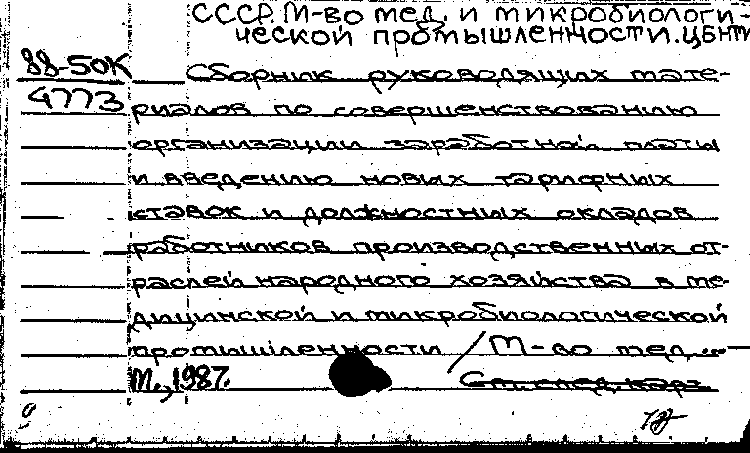 СССР. М-во мед. и микробиологи-
ческой промышленности. ЦБНТИ
88-50К
4773
Сборник руководящих мате-
риалов по совершенствованию
организации заработной платы
и введению новых тарифных
ставок и должностных окладов
работников производственных от-
раслей народного хозяйства в ме-
дицинской и микробиологической
промышленности / М-во мед. ...
М., 1987.
См. след. кар.